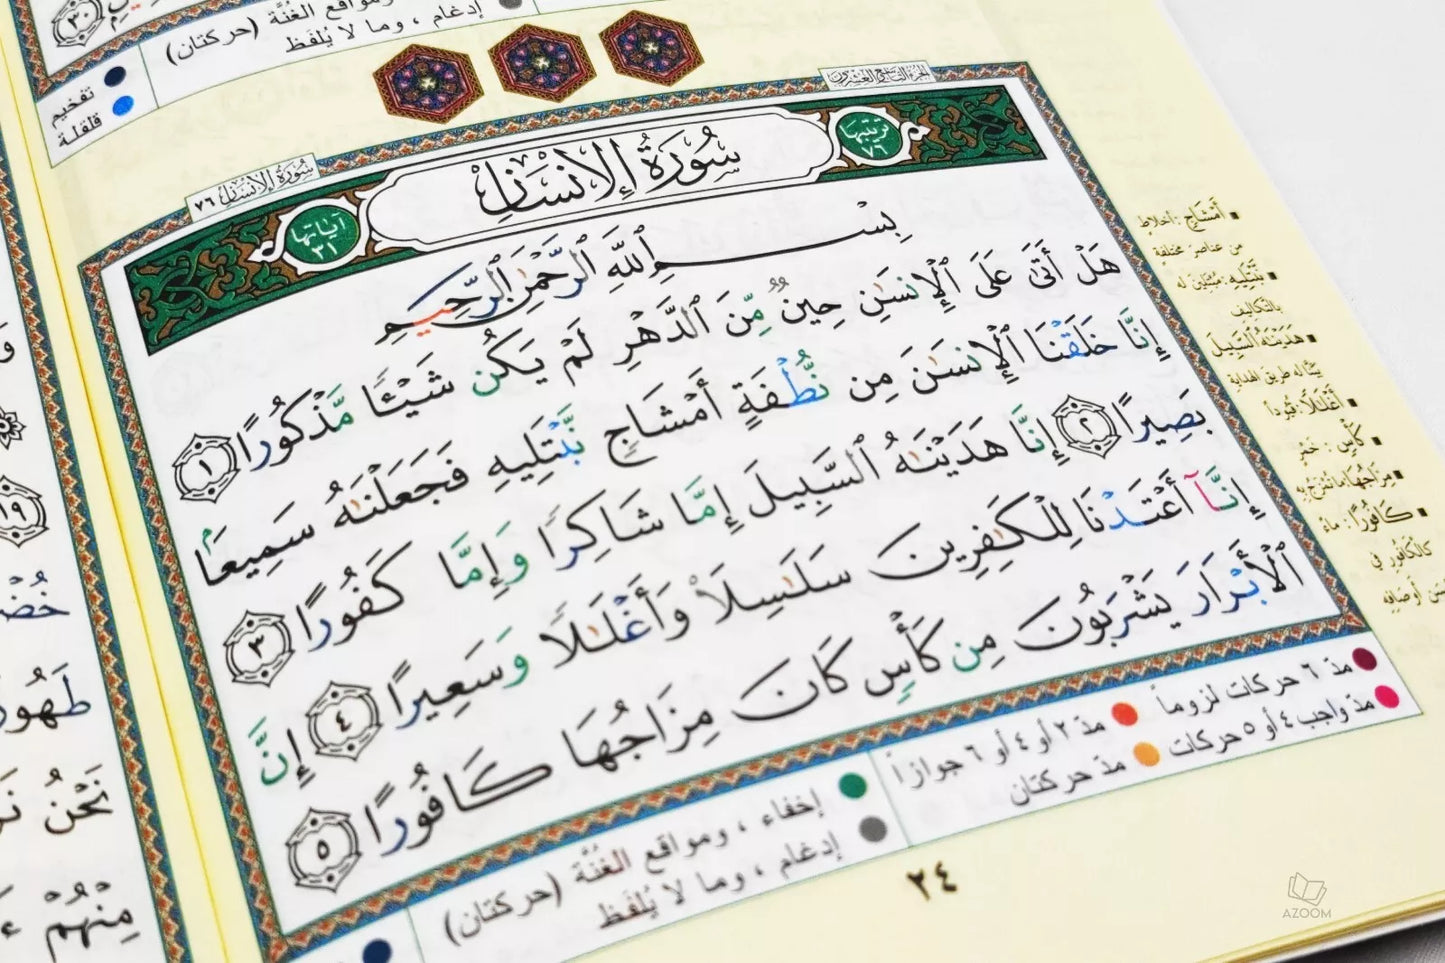 إدغام ، وما لا يُلفَظ
ومواقع الغُنَّة (حركتان)
تفخيم
قلقلة
٣٠
الجزء التاسع والعشرون
سُورَةُ الإِنسَان ٧٦
ترتيبها ٧٦
سُورَةُ الإِنْسَانِ
آياتها ٣١
بِسْمِ ٱللَّهِ ٱلرَّحْمَٰنِ ٱلرَّحِيمِ
هَلْ أَتَىٰ عَلَى ٱلْإِنسَٰنِ حِينٌ مِّنَ ٱلدَّهْرِ لَمْ يَكُن شَيْـًٔا مَّذْكُورًا ١
إِنَّا خَلَقْنَا ٱلْإِنسَٰنَ مِن نُّطْفَةٍ أَمْشَاجٍ نَّبْتَلِيهِ فَجَعَلْنَٰهُ سَمِيعًۢا
بَصِيرًا ٢ إِنَّا هَدَيْنَٰهُ ٱلسَّبِيلَ إِمَّا شَاكِرًا وَإِمَّا كَفُورًا ٣
إِنَّآ أَعْتَدْنَا لِلْكَٰفِرِينَ سَلَٰسِلَا۟ وَأَغْلَٰلًا وَسَعِيرًا ٤ إِنَّ
ٱلْأَبْرَارَ يَشْرَبُونَ مِن كَأْسٍ كَانَ مِزَاجُهَا كَافُورًا ٥
أَمْشَاجٍ: أخلاط
من عناصر مختلفة
نَّبْتَلِيهِ: مُبْتَلين له
بالتكاليف
هَدَيْنَٰهُ السَّبِيلَ
بيّنّا له طريق الهداية
أَغْلَٰلًا: قيودا
كَأْسٍ: خمر
مِزَاجُهَا: ما تُمزج به
كَافُورًا: ماء
كالكافور في
أوصافه
مدّ ٦ حركات لزوماً
مدّ واجب ٤ أو ٥ حركات
مدّ ٢ أو ٤ أو ٦ جوازاً
مدّ حركتان
إخفاء ، ومواقع الغُنَّة (حركتان)
إدغام ، وما لا يُلفَظ
٢٤
١٩
نَّحْنُ
مِنْهُمْ
AZOOM